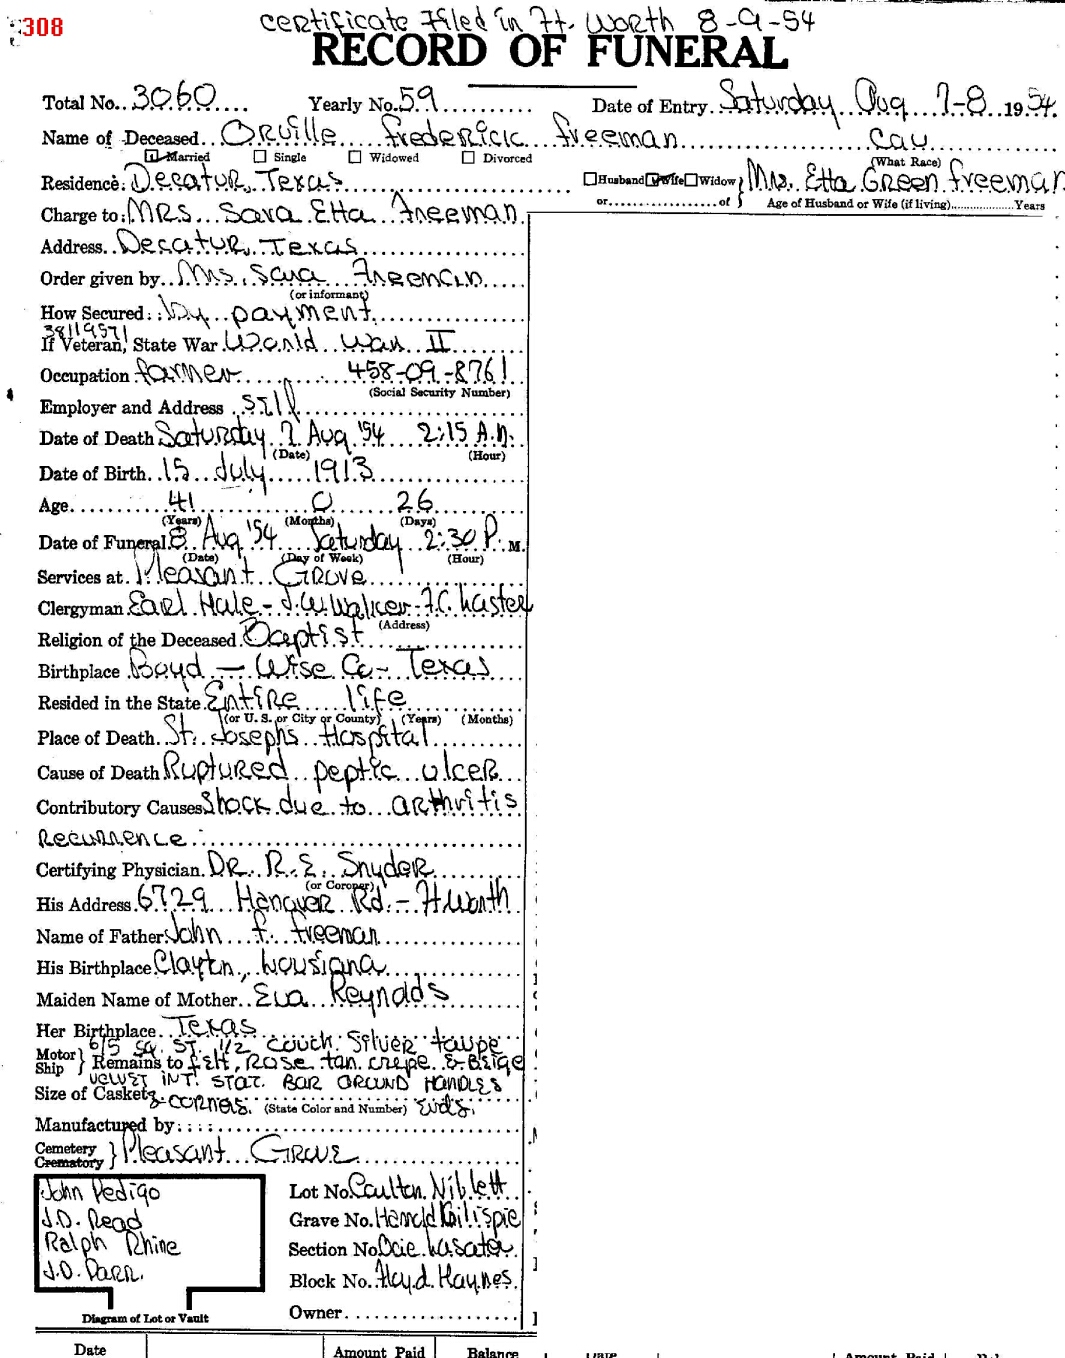 308
certificate Filed in Ft. Worth 8-9-54
RECORD OF FUNERAL
Total No. 3060 Yearly No. 59 Date of Entry Saturday Aug 7-8 1954
Name of Deceased Orville Frederick Freeman Cau
Married Single Widowed Divorced (What Race)
Residence: Decatur, Texas Husband Wife Widow } Mrs. Etta Green Freeman
or of Age of Husband or Wife (if living) Years
Charge to: Mrs. Sara Etta Freeman
Address Decatur, Texas
Order given by Mrs. Sara Freeman
(or informant)
How Secured: by payment
38119571
If Veteran, State War World War II
Occupation farmer 458-09-8761
(Social Security Number)
Employer and Address Self
Date of Death Saturday 7 Aug '54 2:15 A.M.
(Date) (Hour)
Date of Birth 15 July 1913
Age 41 0 26
(Years) (Months) (Days)
Date of Funeral 8 Aug '54 Saturday 2:30 P. M.
(Date) (Day of Week) (Hour)
Services at Pleasant Grove
Clergyman Earl Hale - J.W. Walker - F.C. Laster
(Address)
Religion of the Deceased Baptist
Birthplace Boyd - Wise Co - Texas
Resided in the State Entire life
(or U. S. or City or County) (Years) (Months)
Place of Death St. Josephs Hospital
Cause of Death Ruptured peptic ulcer
Contributory Causes Shock due to arthritis
recurrence
Certifying Physician Dr. R. E. Snyder
(or Coroner)
His Address 6729 Hanover Rd. - Ft Worth
Name of Father John F. Freeman
His Birthplace Clayton, Lousiana
Maiden Name of Mother Eva Reynolds
Her Birthplace Texas
6/5 Sq. St. 1/2 couch silver taupe
Motor Ship } Remains to felt, rose tan crepe & Beige
velvet int. Stat. Bar Ground Handles
Size of Casket & corners. (State Color and Number) ends.
Manufactured by
Cemetery Crematory } Pleasant Grove
John Pedigo
J.D. Read
Ralph Rhine
J.D. Parr.
Diagram of Lot or Vault
Lot No. Coulton Niblett
Grave No. Harrold Gilispie
Section No. Ocie Lasater
Block No. Floyd Haynes
Owner
Date Amount Paid Balance Date Amount Paid